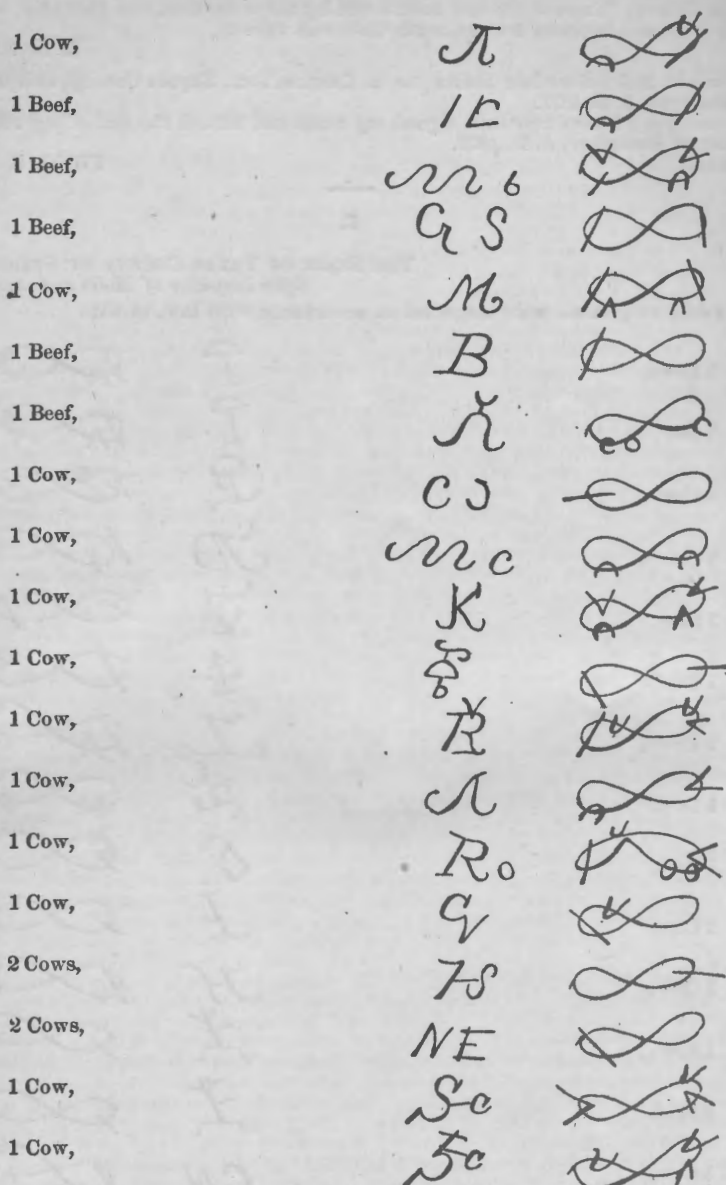 1 Cow,
1 Beef,
1 Beef, b
1 Beef, G S
1 Cow, M
1 Beef, B
1 Beef,
1 Cow, C J
1 Cow, c
1 Cow, K
1 Cow,
1 Cow, R
1 Cow,
1 Cow, Ro
1 Cow,
2 Cows, 7S
2 Cows, NE
1 Cow, Sc
1 Cow, 5c